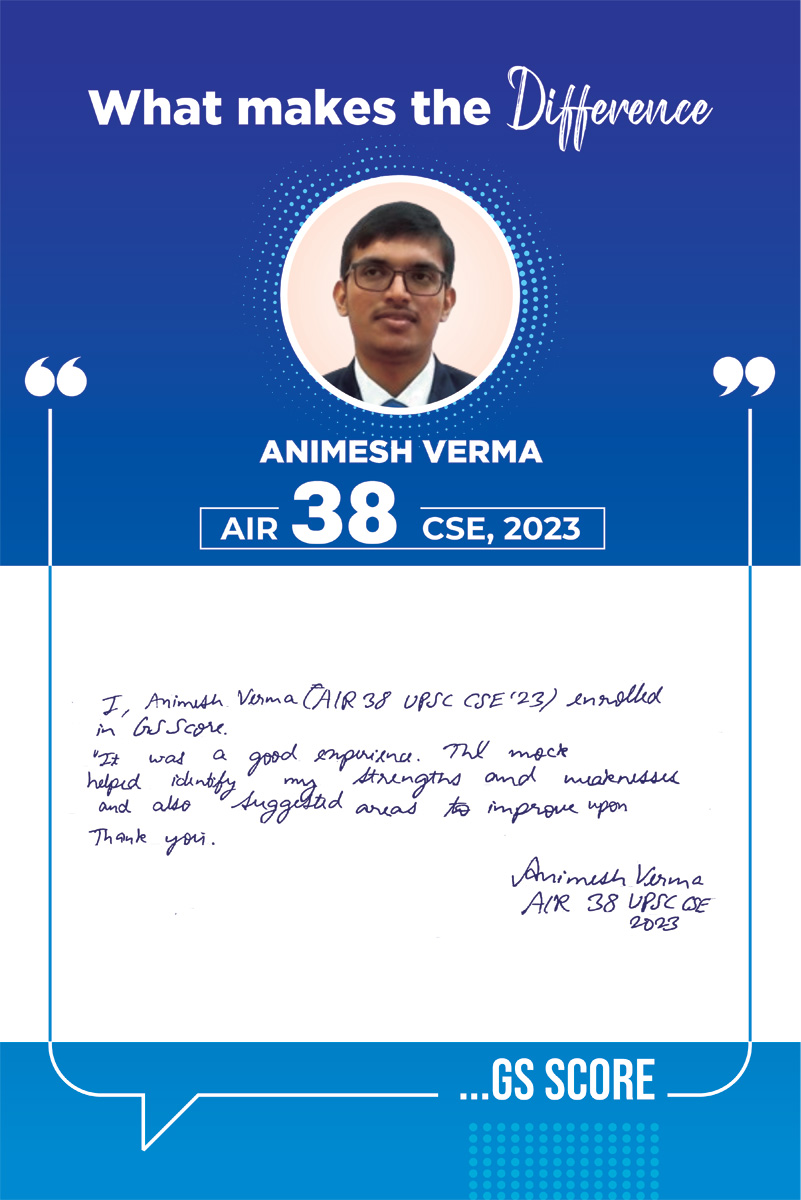 What makes the Difference
ANIMESH VERMA
AIR 38 CSE, 2023
I, Animesh Verma (AIR 38 UPSC CSE '23) enrolled
in GS Score.
"It was a good experience. The mock
helped identify my strengths and weaknesses
and also suggested areas to improve upon
Thank you.
Animesh Verma
AIR 38 UPSC CSE
2023
...GS SCORE